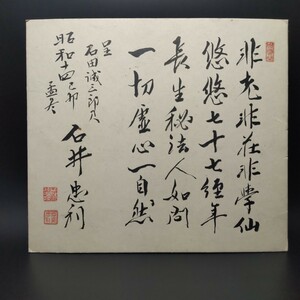 非老非荘非学仙
悠悠七十七経年
長生秘法人如問
一切虚心一自然
呈
石田誠三郎兄
昭和十四己卯
孟冬
石井忠利